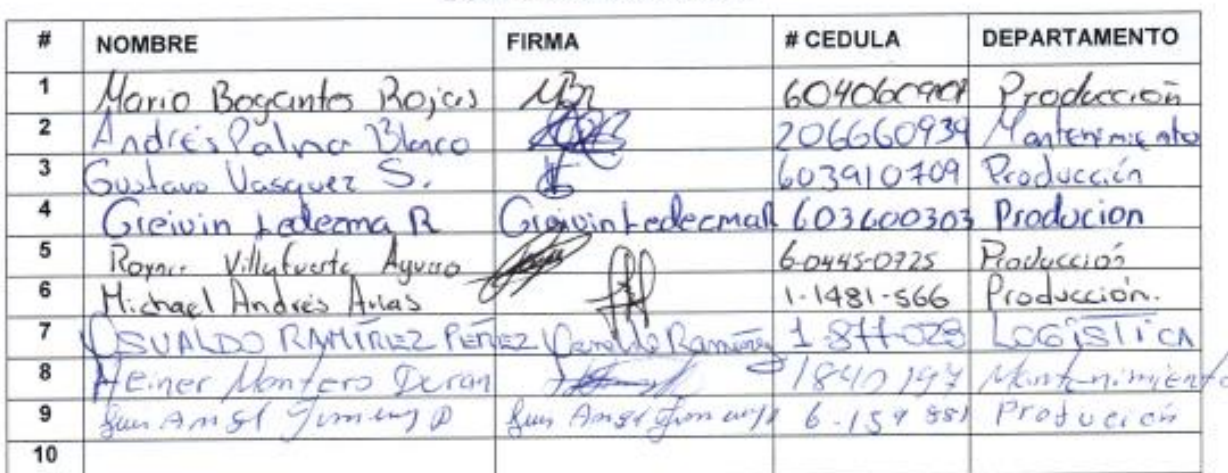 # NOMBRE FIRMA # CEDULA DEPARTAMENTO
1 Mario Bogantes Rojas MBR Producción
2 Andrés Palma Blanco 206660939 Mantenimiento
3 Gustavo Vasquez S. 603910709 Producción
4 Greivin Ledezma R Greivin Ledecma R 603600303 Producion
5 Villafuerte 6-0445-0725 Producción
6 Michael Andrés Arias 1-1481-566 Producción.
7 OSVALDO RAMÍREZ PEREZ Osvaldo Ramírez LOGÍSTICA
8 Heiner Montero Duran Mantenimiento
9 Luis Angel Luis Angel Producción
10